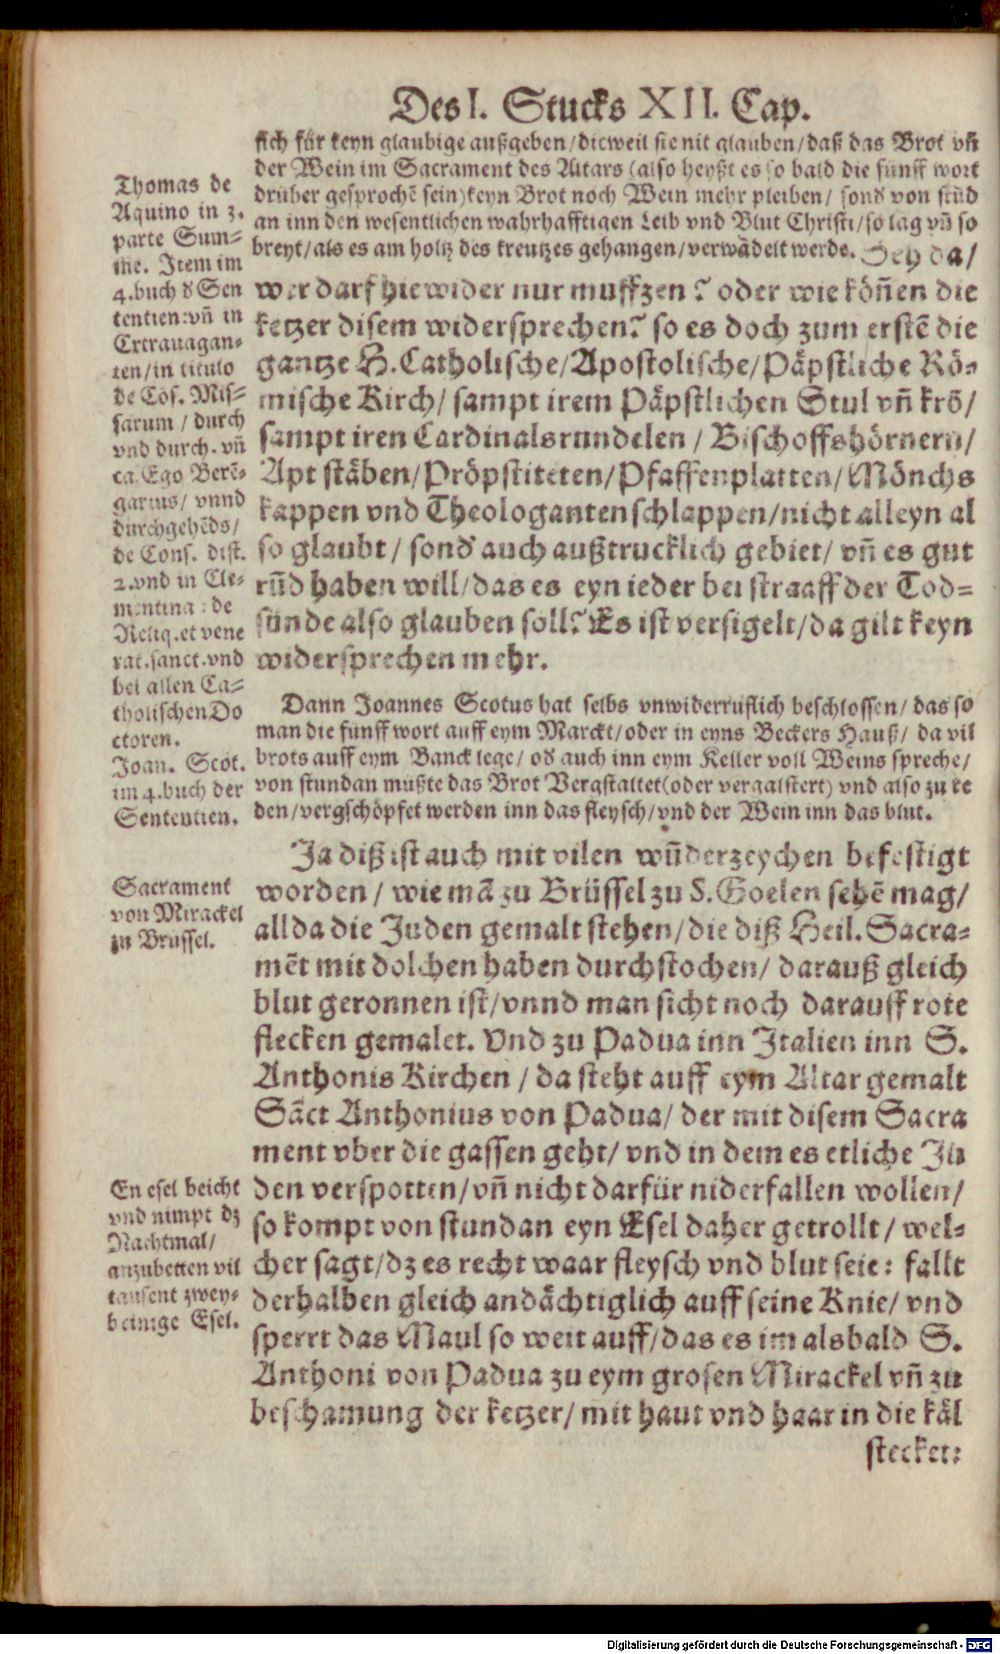 Des I. Stucks XII. Cap.
sich für keyn glaubige außgeben/dieweil sie nit glauben/daß das Brot vñ
der Wein im Sacrament des Altars (also heyßt es so bald die fünff wort
drüber gesprochẽ sein) keyn Brot noch Wein mehr pleiben/ sond von stũd
an inn den wesentlichen wahrhafftigen Leib vnd Blut Christi/so lãg vñ so
breyt/als es am holtz des kreutzes gehangen/verwãdelt werde. Seh da/
wer darf hiewider nur muffzen? oder wie köñen die
ketzer disem widersprechen? so es doch zum erstẽ die
gantze H.Catholische/Apostolische/Päpstliche Rö-
mische Kirch/ sampt irem Päpstlichen Stul vñ krõ/
sampt iren Cardinalsrundelen / Bischoffshörnern/
Apt stäben/Pröpstiteten/Pfaffenplatten/Mönchs
kappen vnd Theologantenschlappen/nicht alleyn al
so glaubt/ sond auch außtrucklich gebiet/ vñ es gut
rũd haben will/das es eyn ieder bei straaff der Tod=
sünde also glauben soll? Es ist versigelt/da gilt keyn
widersprechen mehr.
Dann Joannes Scotus hat selbs vnwiderruflich beschlossen/ das so
man die fünff wort auff eym Marckt/oder in eyns Beckers Hauß/ da vil
brots auff eym Banck lege/ od auch inn eym Keller voll Weins spreche/
von stundan müßte das Brot Vergstaltet(oder vergalstert) vnd also zu re
den/vergschöpfet werden inn das fleysch/vnd der Wein inn das blut.
Ja diß ist auch mit vilen wũderzeychen befestigt
worden / wie mã zu Brüssel zu S.Goelen sehẽ mag/
allda die Juden gemalt stehen/die diß Heil. Sacra=
mẽt mit dolchen haben durchstochen/ darauß gleich
blut geronnen ist/vnnd man sicht noch darauff rote
flecken gemalet. Vnd zu Padua inn Italien inn S.
Anthonis Kirchen / da steht auff eym Altar gemalt
Sãct Anthonius von Padua/ der mit disem Sacra
ment vber die gassen geht/ vnd in dem es etliche Ju
den verspotten/vñ nicht darfür niderfallen wollen/
so kompt von stundan eyn Esel daher getrollt/ wel-
cher sagt/dz es recht waar fleysch vnd blut seie: fallt
derhalben gleich andächtiglich auff seine Knie/ vnd
sperrt das Maul so weit auff/das es im alsbald S.
Anthoni von Padua zu eym grosen Mirackel vñ zu
beschamung der ketzer/ mit haut vnd haar in die käl
stecket:
Thomas de
Aquino in 3.
parte Sum=
me. Item im
4.buch d Sen
tentien:vñ in
Extrauagan-
ten/in titulo
de Cõs. Mis=
sarum / durch
vnd durch. vñ
ca.Ego Berẽ-
garius/ vnnd
durchgehẽds/
de Cons. dist.
2.vnd in Cle-
mentina: de
Reliq.et vene
rat.sanct.vnd
bei allen Ca=
tholischen Do
ctoren.
Joan. Scot.
im 4.buch der
Sententien.
Sacrament
von Mirackel
zu Brussel.
En esel beicht
vnd nimpt dz
Nachtmal/
anzubetten vil
tausent zwey-
beinige Esel.
Digitalisierung gefördert durch die Deutsche Forschungsgemeinschaft - DFG